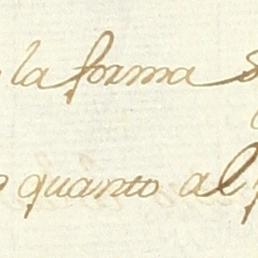 la forma
quanto al